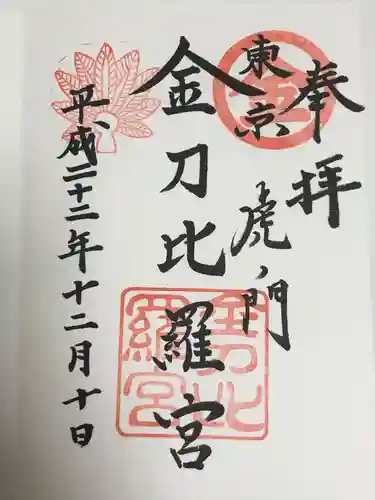 奉拝
東京
虎ノ門
金刀比羅宮
平成二十二年十二月十日
金
金刀比
羅宮